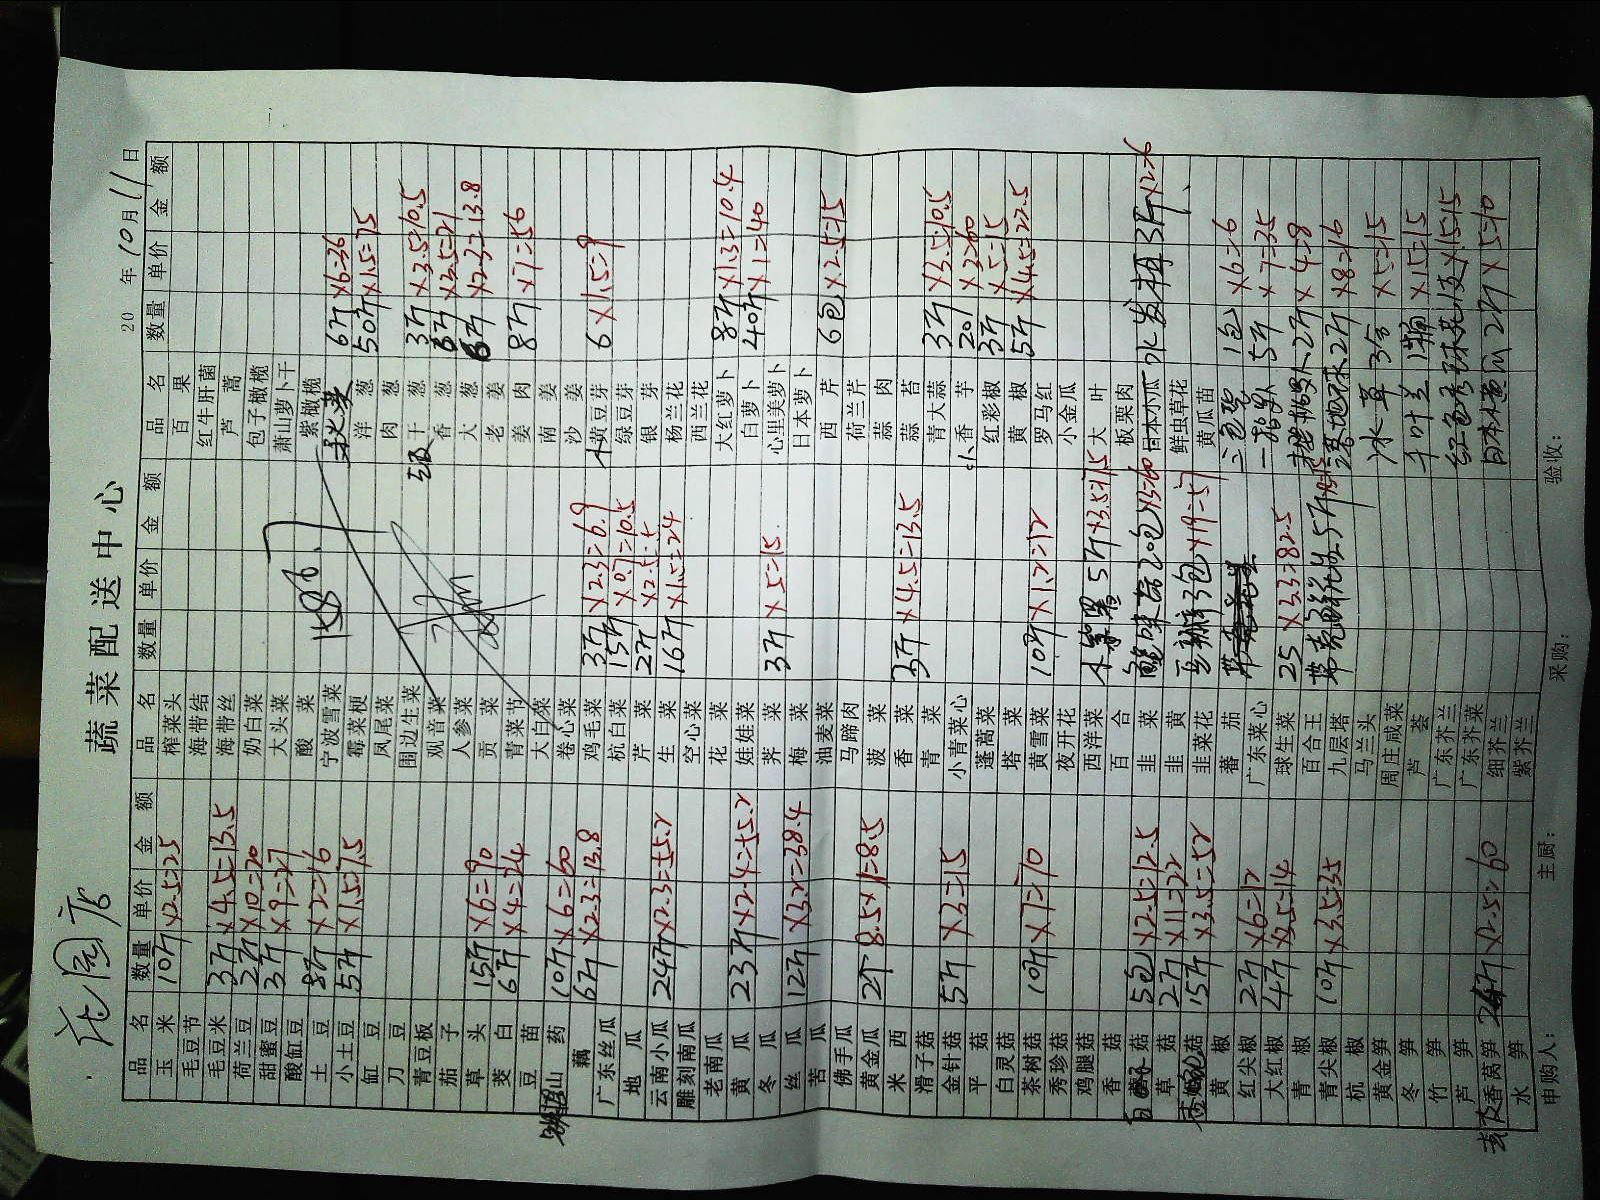 花园店
蔬菜配送中心
20 年10月11日
品名 数量 单价 金额
玉米 10斤×2.5=25
毛豆节
毛豆米 3斤×4.5=13.5
荷兰豆 2斤×10=20
甜蜜豆 3斤×9=27
酸缸豆
土豆 8斤×2=16
小土豆 5斤×1.5=7.5
缸豆
刀豆
青豆板
茄子
草头 15斤×6=90
茭白 6斤×4=24
豆苗
山药 10斤×6=60
藕 6斤×2.3=13.8
广东丝瓜
地瓜
云南小瓜 24斤×2.3=55.2
雕刻南瓜
老南瓜
黄瓜 23斤×2.4=55.2
冬瓜
丝瓜 12斤×3.2=38.4
苦瓜
佛手瓜
黄金瓜 2个 8.5×1=8.5
米西
滑子菇
金针菇 5斤×3=15
平菇
白灵菇
茶树菇 10斤×7=70
秀珍菇
鸡腿菇
香菇
菇 5包×2.5=12.5
草菇 2斤×11=22
菇 15斤×3.5=52
黄椒
红尖椒 2斤×6=12
大红椒 4斤×3.5=14
青椒
青尖椒 10斤×3.5=35
杭椒
黄金笋
冬笋
竹笋
芦笋
去皮香莴笋 24斤×2.5=60
水笋
品名 数量 单价 金额
榨菜头
海带结
海带丝
奶白菜
大头菜
酸菜
宁波雪菜
霉菜梗
凤尾菜
围边生菜
观音菜
人参菜
贡菜
青菜节
大白菜
卷心菜
鸡毛菜 3斤×2.3=6.9
杭白菜 15斤×0.7=10.5
芹菜 2斤×2.5=5
生菜 16斤×1.5=24
空心菜
花菜
娃娃菜
荠菜 3斤×5=15
梅菜
油麦菜
马蹄肉
菠菜
香菜 3斤×4.5=13.5
青菜
小青菜心
蓬蒿菜
塔菜
黄雪菜 10斤×1.2=12
夜开花
西洋菜
百合
韭菜
韭黄 3包×19=57
韭菜花
蕃茄
广东菜心
球生菜 25×3.3=82.5
百合王
九层塔
马兰头
周庄咸菜
芦荟
广东芥兰
广东芥菜
细芥兰
紫芥兰
品名 数量 单价 金额
百果
红牛肝菌
芦蒿
包子橄榄
萧山萝卜干
紫橄榄
洋葱 50斤×1.5=75
肉葱
干葱 3斤×3.5=10.5
香葱 6斤×3.5=21
大葱 6斤×2.3=13.8
老姜
姜肉 8斤×7=56
南姜
沙姜
黄豆芽 6×1.5=9
绿豆芽
银芽
杨兰花
西兰花
大红萝卜 8斤×1.3=10.4
白萝卜 40斤×1=40
心里美萝卜
日本萝卜
西芹 6包×2.5=15
荷兰芹
蒜肉
蒜苔
青大蒜 3斤×3.5=10.5
小香芋 20斤×3=60
红彩椒 3斤×5=15
黄椒 5斤×4.5=22.5
罗马红
小金瓜
大叶
板栗肉
日本小瓜
鲜虫草花
黄瓜苗
1包×6=6
5斤×7=35
2斤×4=8
2斤×8=16
冰草 3盒×5=15
千叶兰 1桶×15=15
日本黄瓜 2斤×5=10
申购人:
主厨:
采购:
验收: